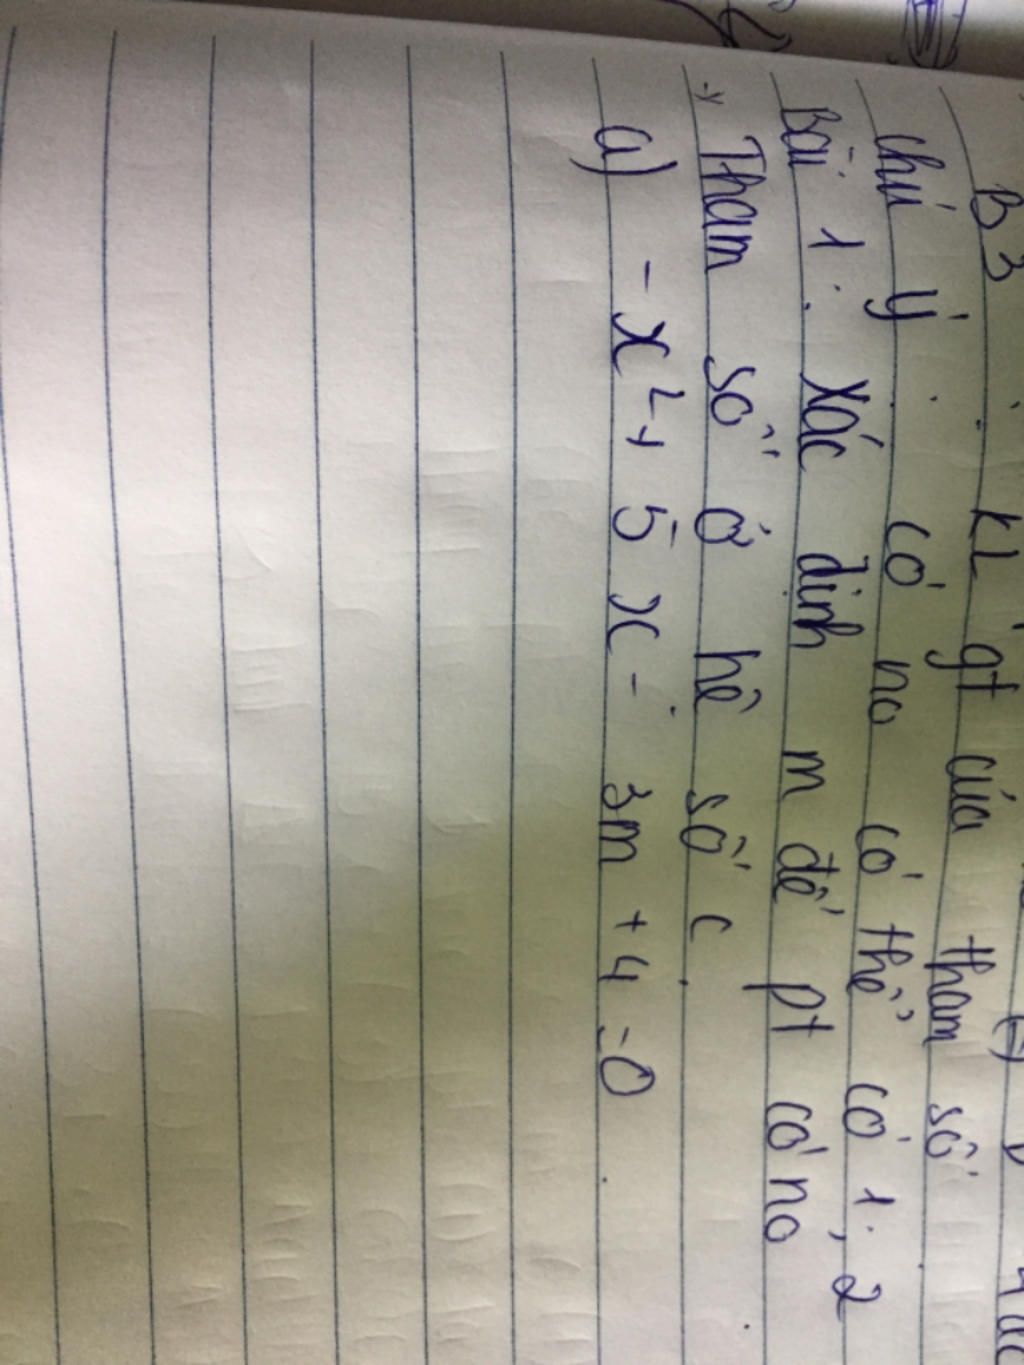 B3 : KL gt của tham số
chú ý : có no có thể có 1, 2
Bài 1 : xác định m để pt có no
Tham số ở hệ số c
a) -x² + 5x - 3m + 4 = 0